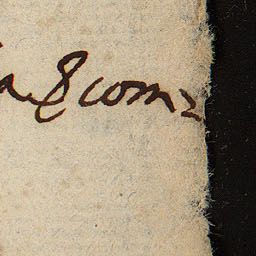 a & com=